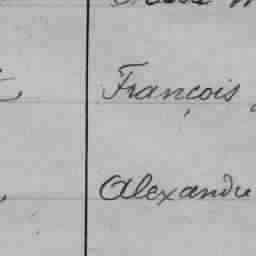 François
Alexandre